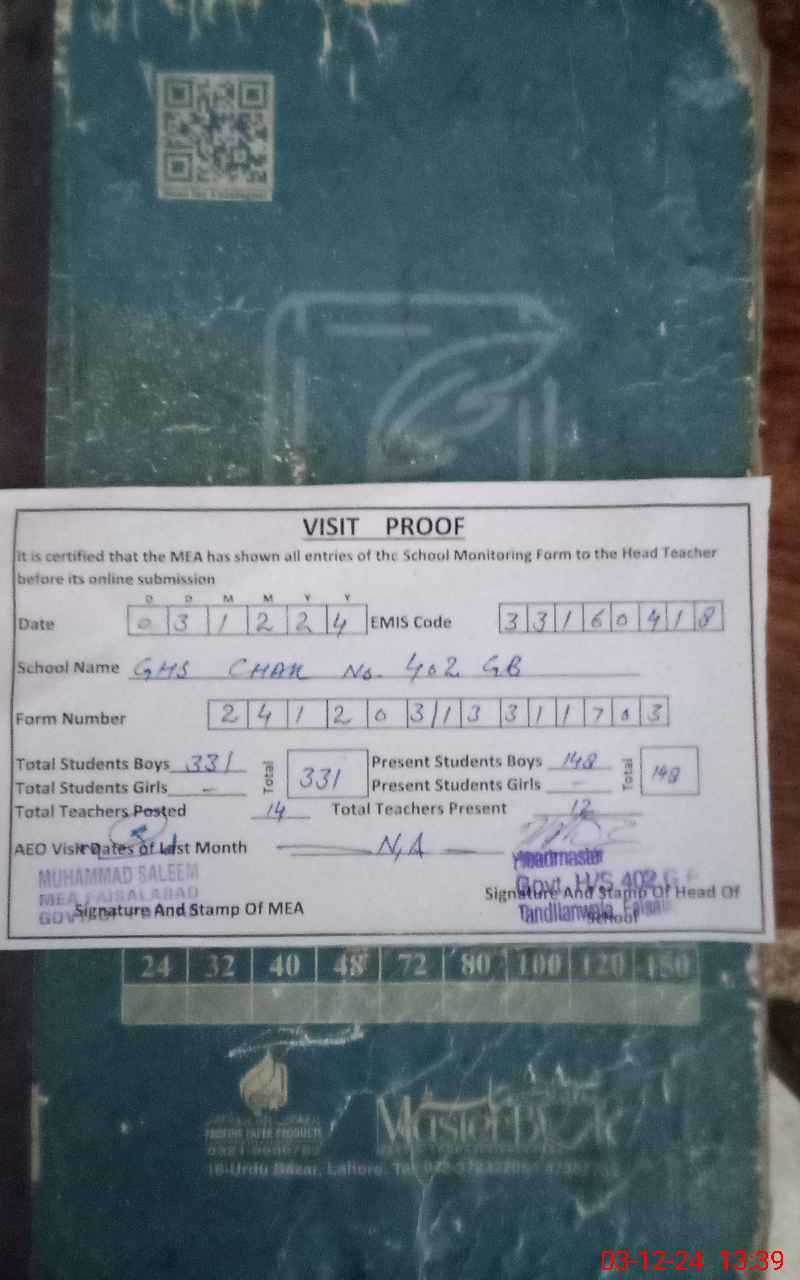 VISIT PROOF
It is certified that the MEA has shown all entries of the School Monitoring Form to the Head Teacher
before its online submission
D D M M Y Y
Date 0 3 1 2 2 4 EMIS Code 3 3 1 6 0 4 1 8
School Name GHS CHAK No. 402 GB
Form Number 2 4 1 2 0 3 1 3 3 1 1 7 0 3
Total Students Boys 331 Total 331 Present Students Boys 148 Total 148
Total Students Girls - Present Students Girls -
Total Teachers Posted 14 Total Teachers Present 12
AEO Visit Dates of Last Month N,A
MUHAMMAD SALEEM
MEA FAISALABAD
Headmaster
Govt. H/S 402 G
Tandlianwala,
Signature And Stamp Of MEA
Signature And Stamp Of Head Of
School
24 32 40 48 72 80 100 120 150
PAPER PRODUCTS
MasterBook
16-Urdu Bazar, Lahore.
03-12-24 13:39